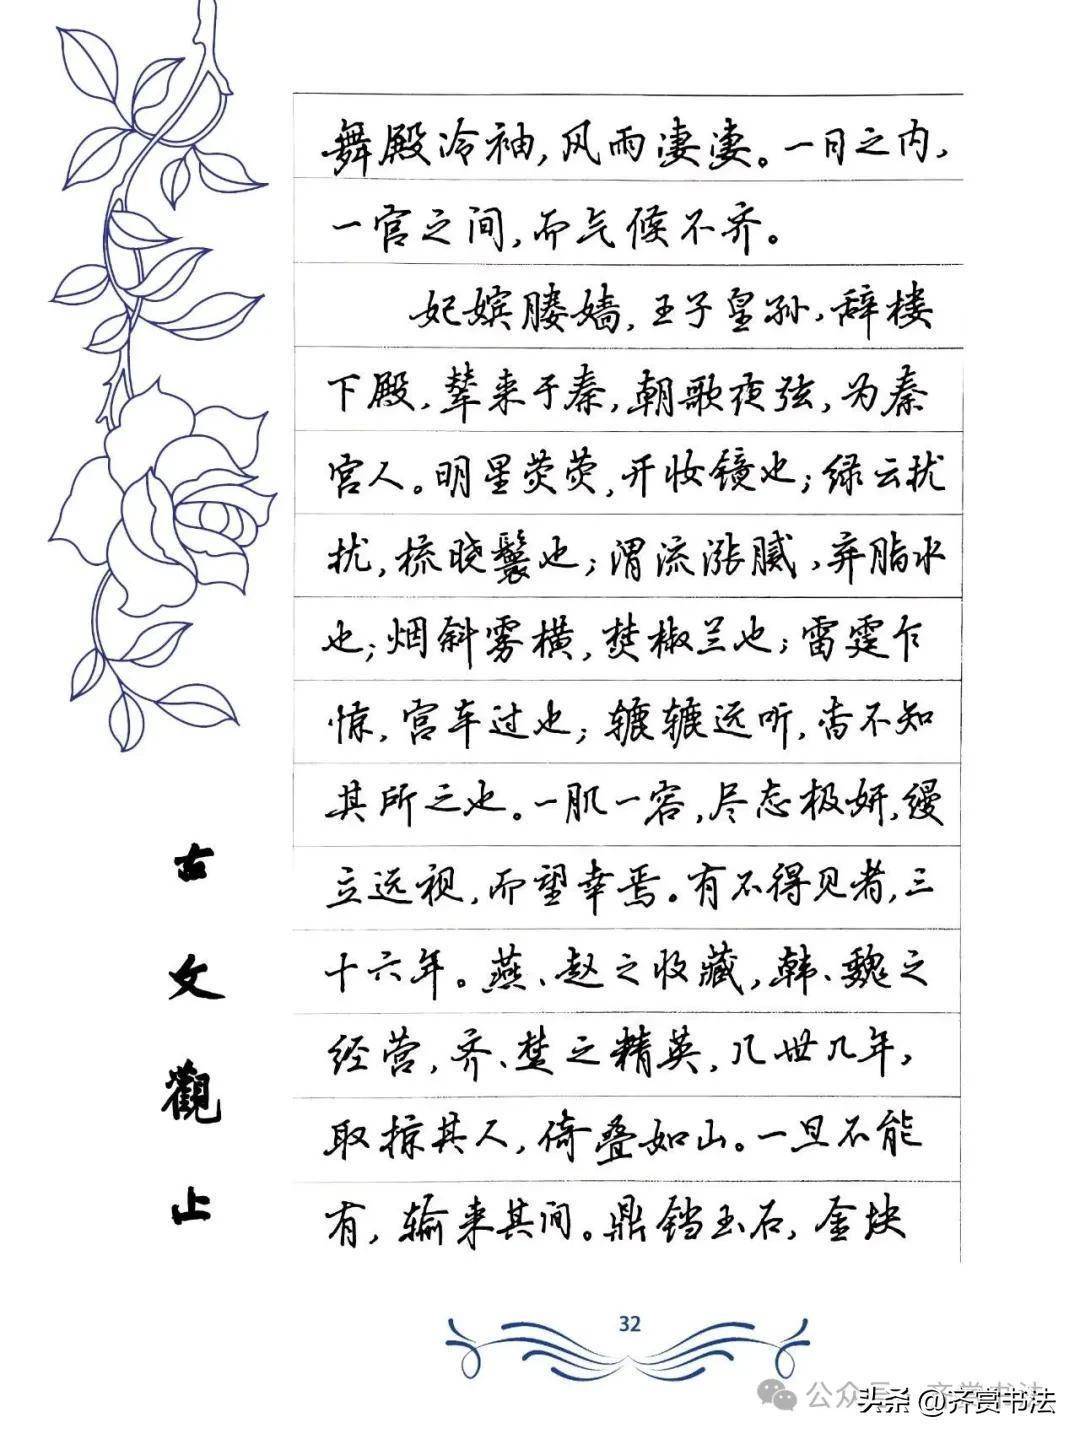 舞殿冷袖,风雨凄凄。一日之内,
一宫之间,而气候不齐。
妃嫔媵嫱,王子皇孙,辞楼
下殿,辇来于秦,朝歌夜弦,为秦
宫人。明星荧荧,开妆镜也;绿云扰
扰,梳晓鬟也;渭流涨腻,弃脂水
也;烟斜雾横,焚椒兰也;雷霆乍
惊,宫车过也;辘辘远听,杳不知
其所之也。一肌一容,尽态极妍,缦
立远视,而望幸焉。有不得见者,三
十六年。燕、赵之收藏,韩、魏之
经营,齐、楚之精英,几世几年,
取掠其人,倚叠如山。一旦不能
有,输来其间。鼎铛玉石,金块
古文觀止
32
公众号·齐赏书法
头条 @齐赏书法